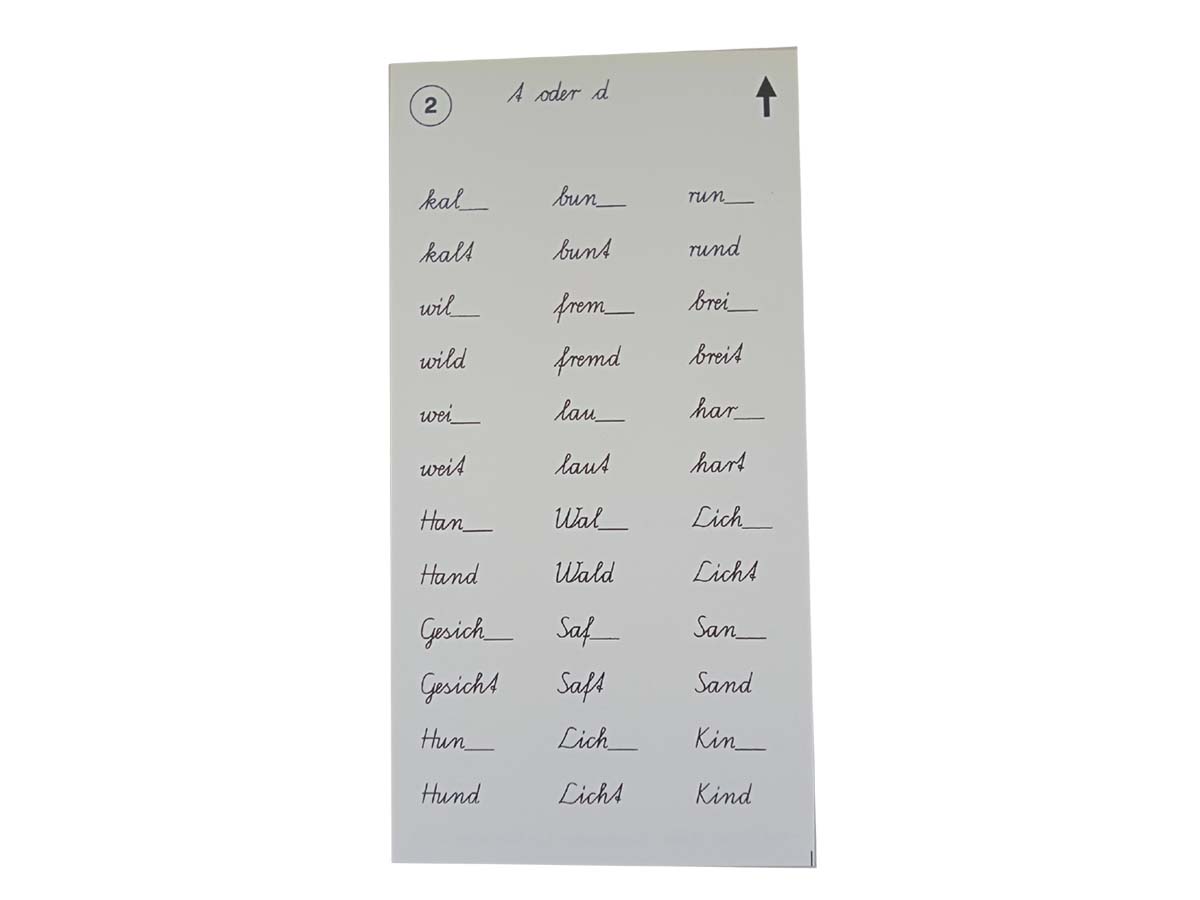 2 t oder d
kal__ bun__ run__
kalt bunt rund
wil__ frem__ brei__
wild fremd breit
wei__ lau__ har__
weit laut hart
Han__ Wal__ Lich__
Hand Wald Licht
Gesich__ Saf__ San__
Gesicht Saft Sand
Hun__ Lich__ Kin__
Hund Licht Kind